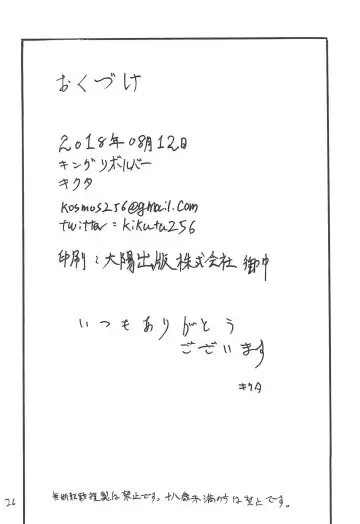 おくづけ
2018年08月12日
キングリボルバー
キクタ
kosmos256@gmail.com
twitter : kikuta256
印刷 : 大陽出版株式会社 御中
いつもありがとう
ございます
キクタ
無断転載複製は禁止です。十八歳未満の方は禁止です。
26